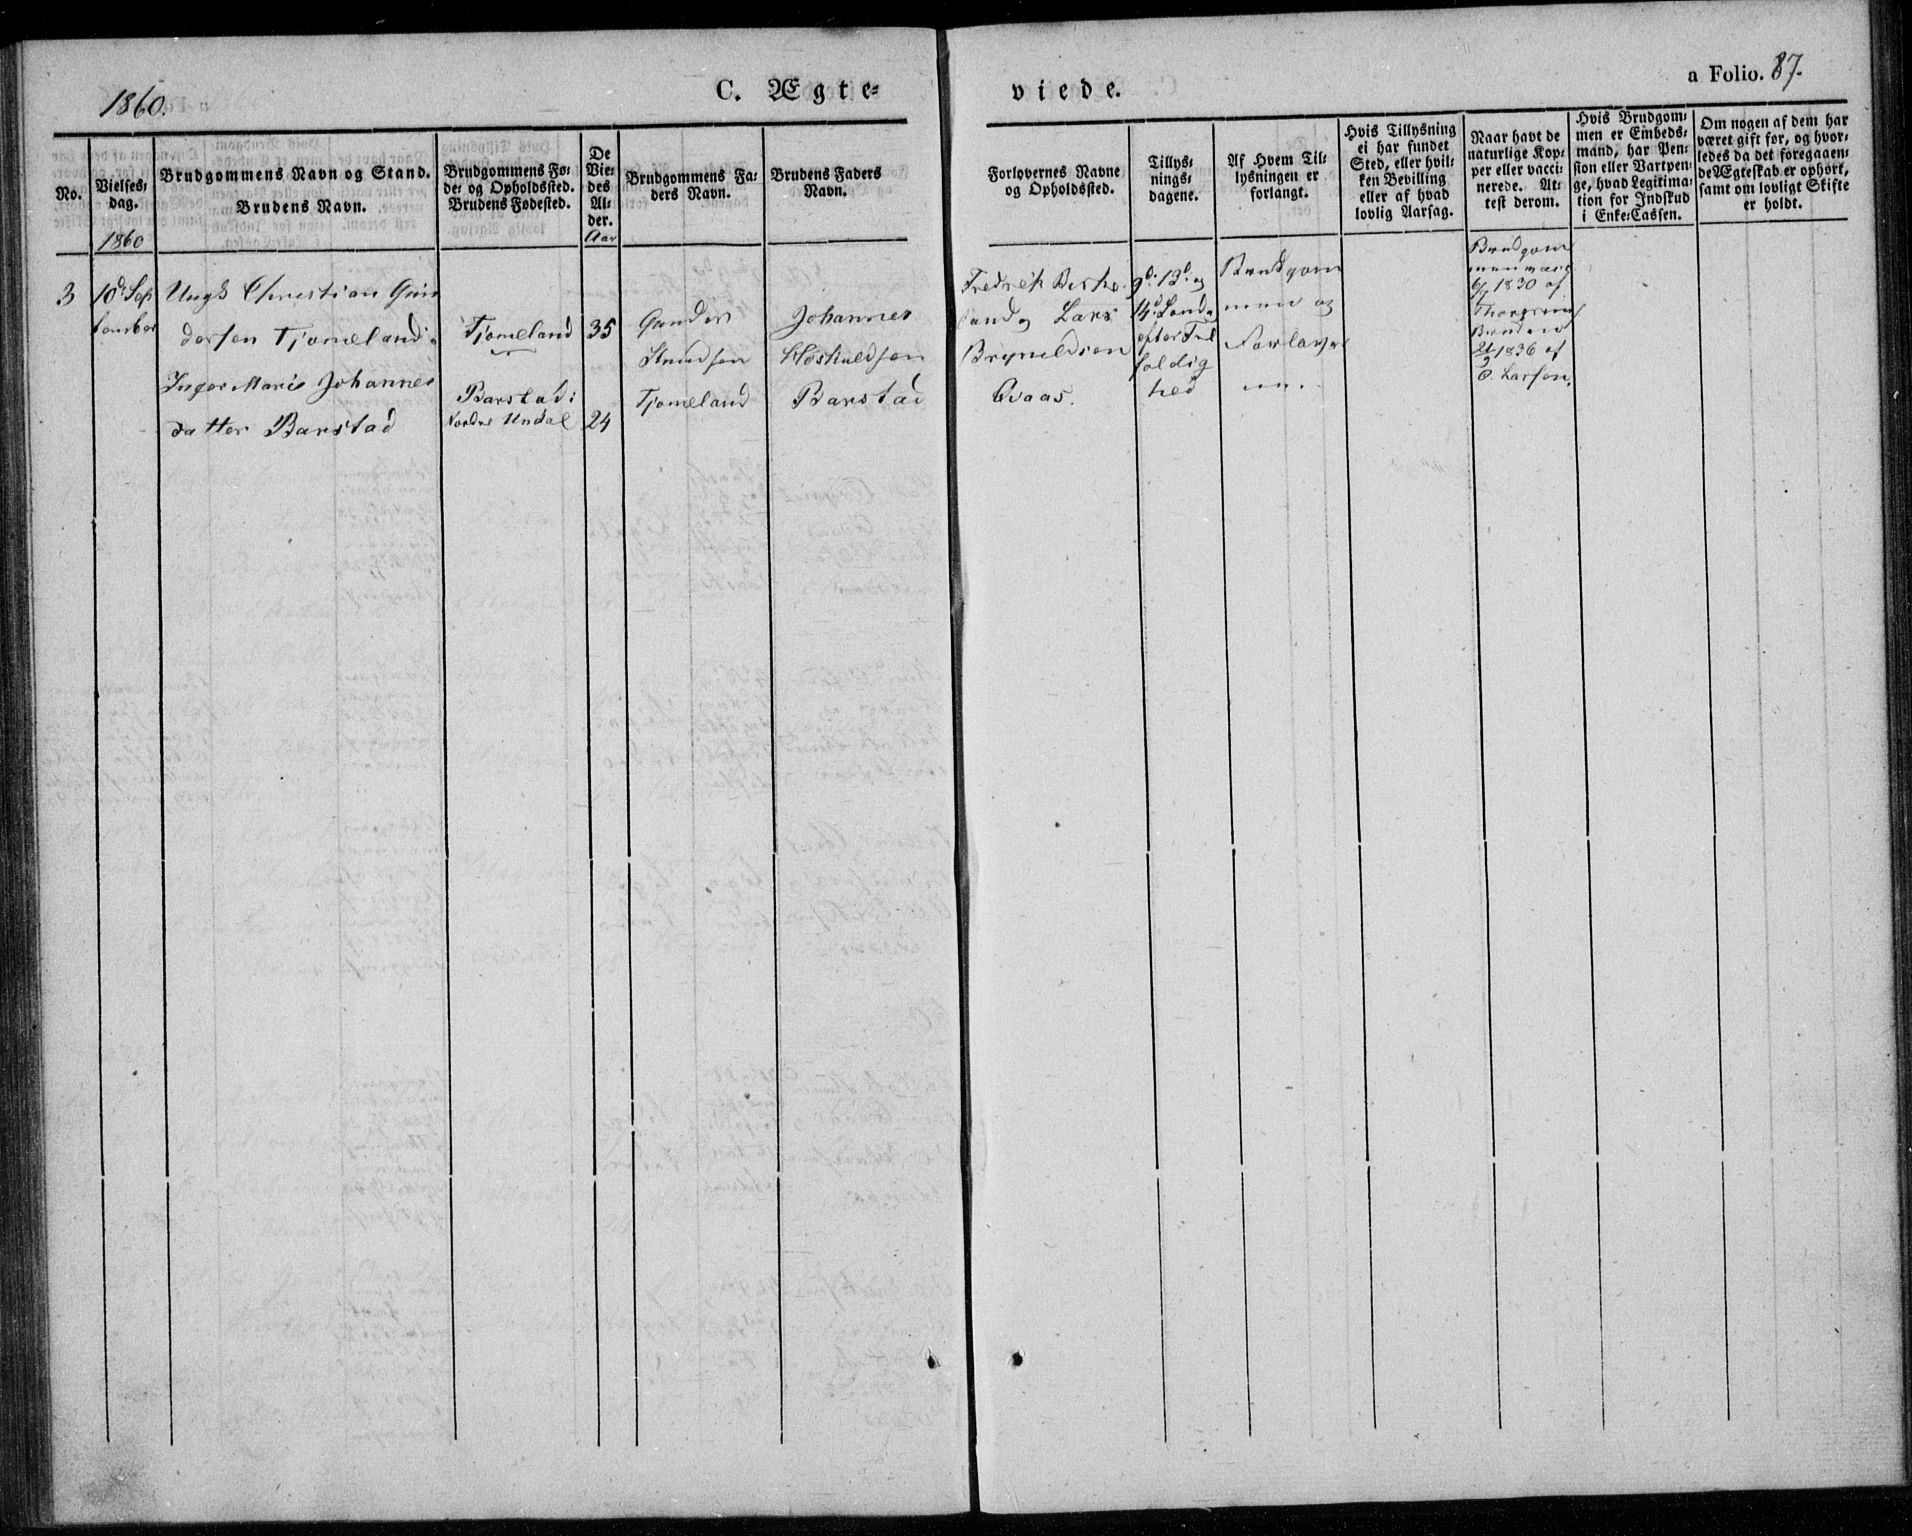 1860.
C. Ægte=
viede.
a Folio. 87.
No.
Vielses=
dag.
1860
Brudgommens Navn og Stand.
Brudens Navn.
Brudgommens Fø=
de= og Opholdssted.
Brudens Fødested.
De
Vie=
des
Al=
der.
Aar
Brudgommens Fa=
ders Navn.
Brudens Faders
Navn.
Forlovernes Navne
og Opholdssted.
Tillys=
nings=
dagene.
Af Hvem Til=
lysningen er
forlangt.
Hvis Tillysning
ei har fundet
Sted, eller hvil=
ken Bevilling
eller af hvad
lovlig Aarsag.
Naar havt de
naturlige Kop=
per eller vacci=
nerede. At=
test derom.
Hvis Brudgom=
men er Embeds=
mand, har Pen=
sion eller Vartpen=
ge, hvad Legitima=
tion for Indskud
i Enke=Cassen.
Om nogen af dem har
været gift før, og hvor=
ledes da det foregaaen=
de Ægteskab er ophørt,
samt om lovligt Skifte
er holdt.
3
10d Sep
tember
Ungk Christian Gun
dersen Tjomeland
Inger Marie Johannes
datter Barstad
Tjomeland
Barstad i
Nordre Undal
35
24
Gunder
Knudsen
Tjomeland
Johannes
Høskuldsen
Barstad
Fredrik
land og Lars
Bryneldsen
Avaas.
9d 13d og
14d Sond
efter Tre
foldig
hed
Brudgom
men og
Forlover
ne.
Brudgom
men vacc
6/7 1830 af
Bruden
1836 af
O. Larsen.